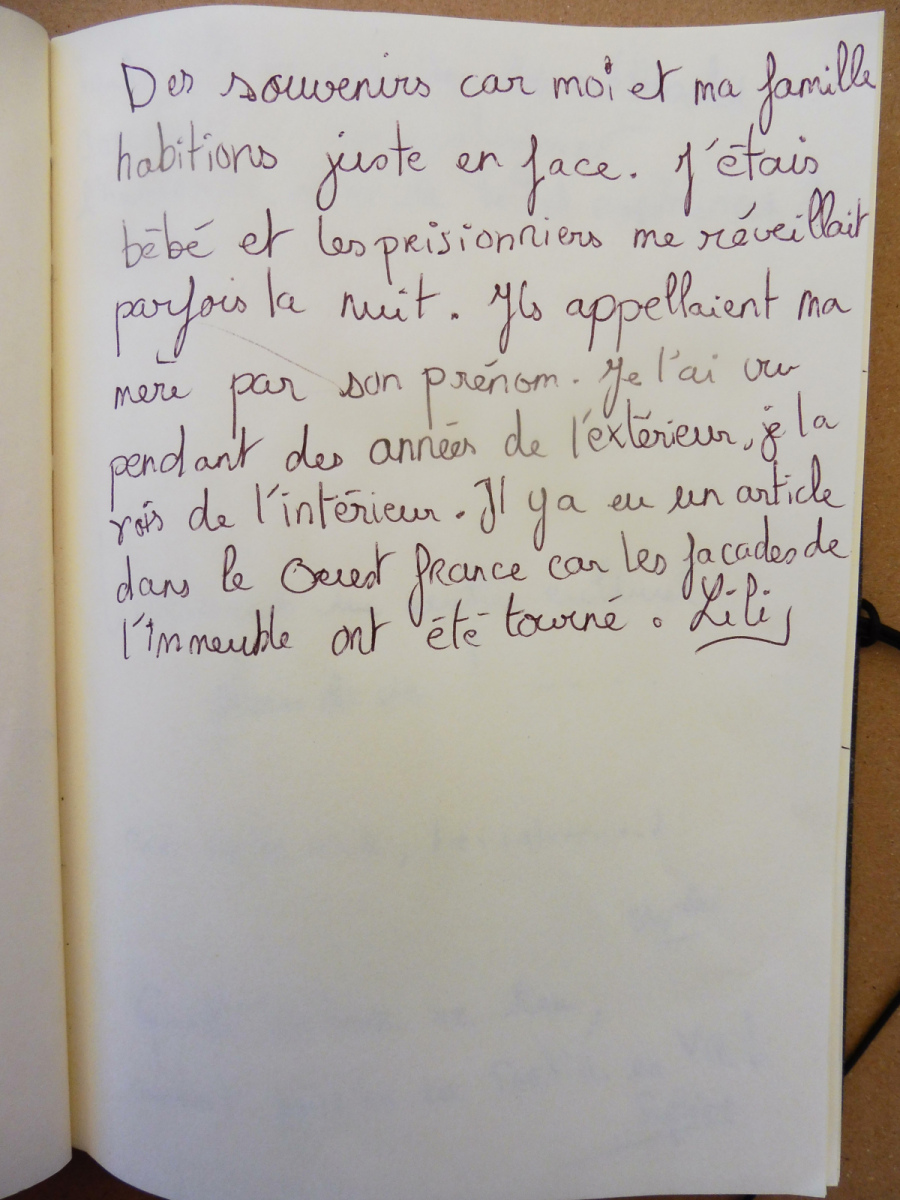 Des souvenirs car moi et ma famille
habitions juste en face. J'étais
bébé et les prisionniers me réveillait
parfois la nuit. Ils appellaient ma
mère par son prénom. Je l'ai vu
pendant des années de l'extérieur, je la
vois de l'intérieur. Il y a eu un article
dans le Ouest france car les facades de
l'immeuble ont été tourné. Lili